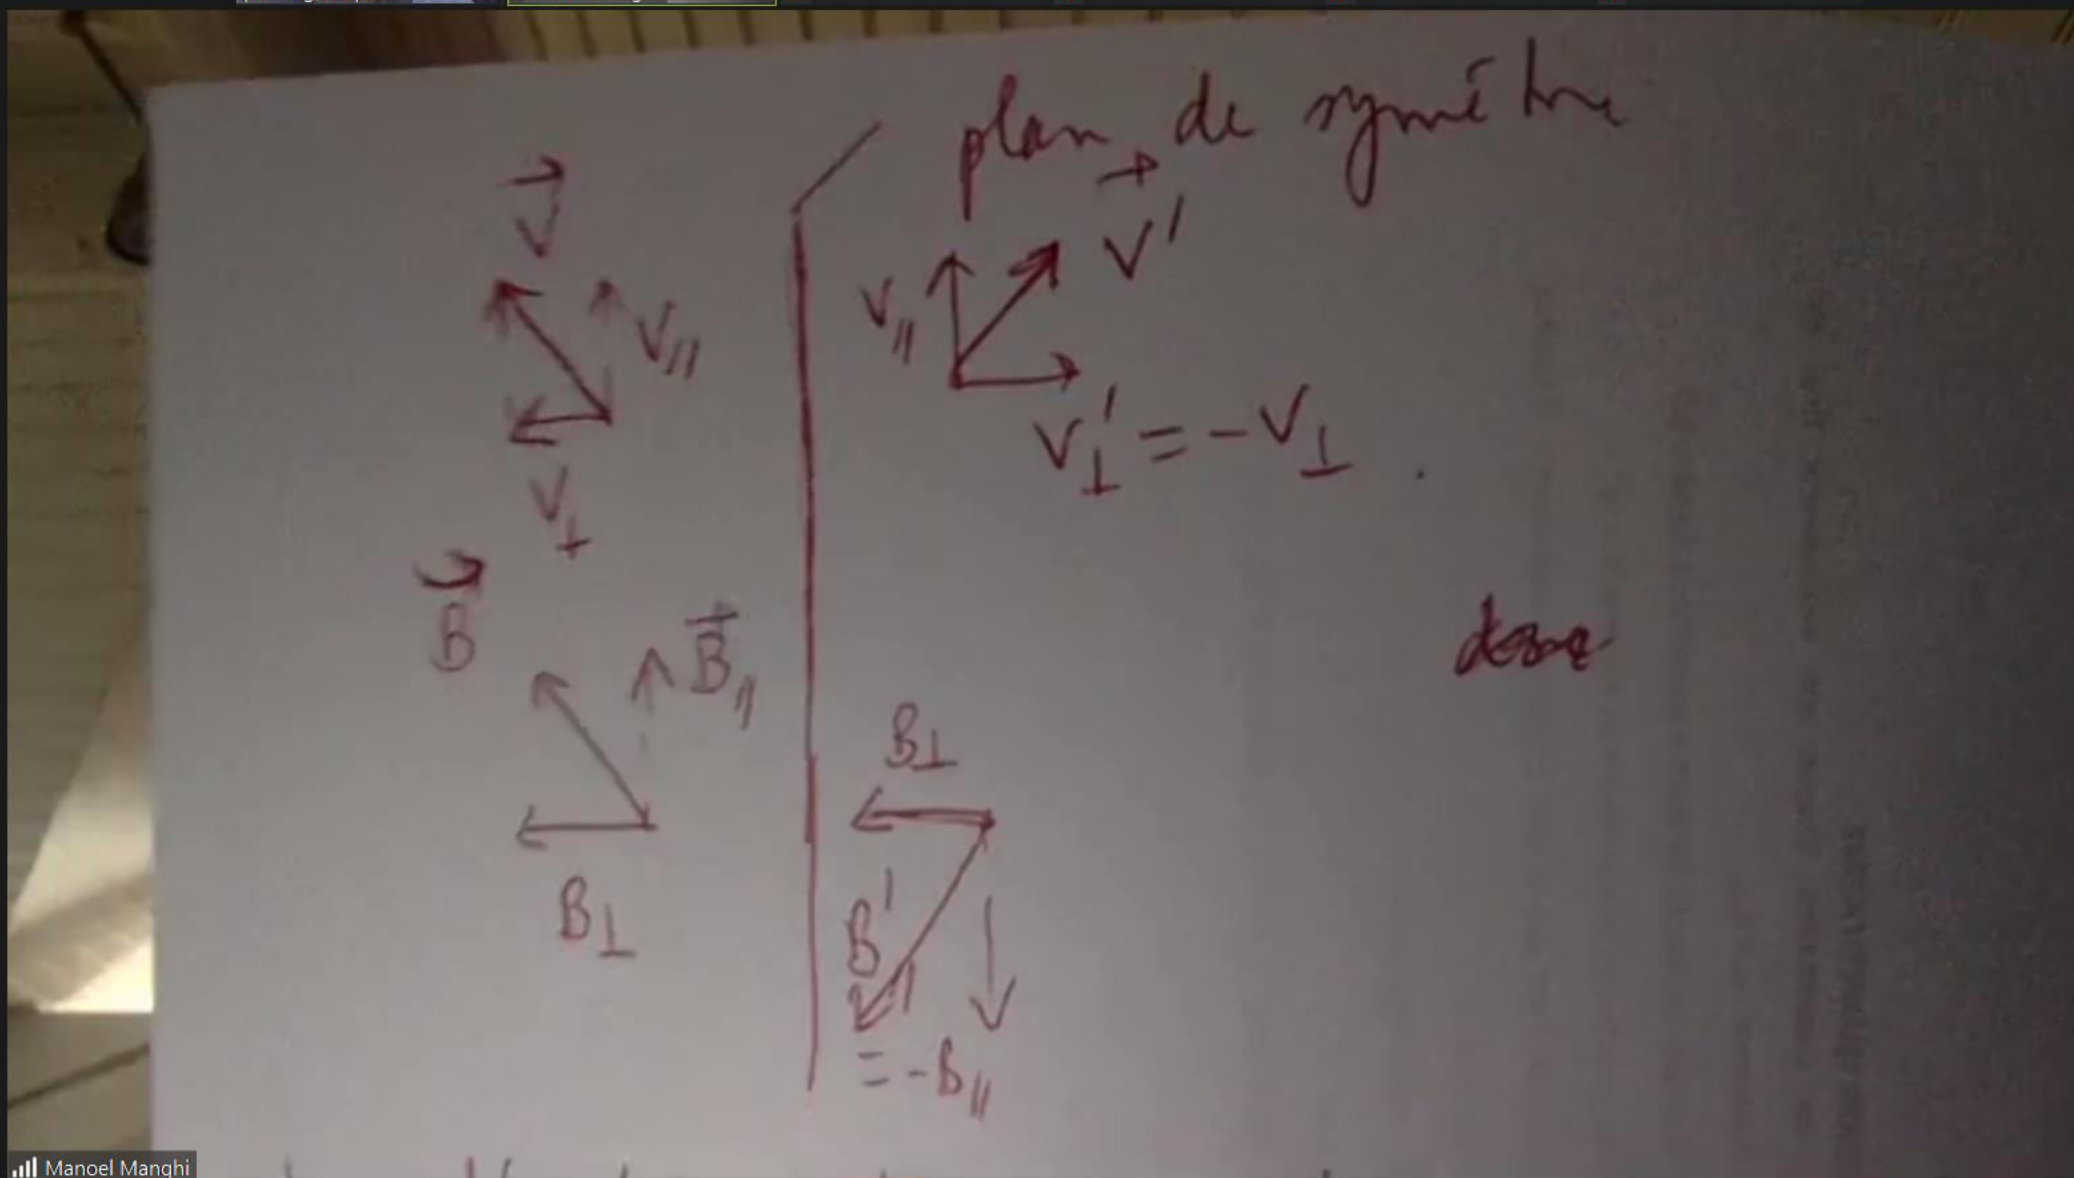 plan de symétrie
V⃗
V⃗'
V//
V//
V'⊥ = -V⊥ .
V⊥
B⃗
B⃗//
B⊥
B⊥
B'//
= -B//
Manoel Manghi